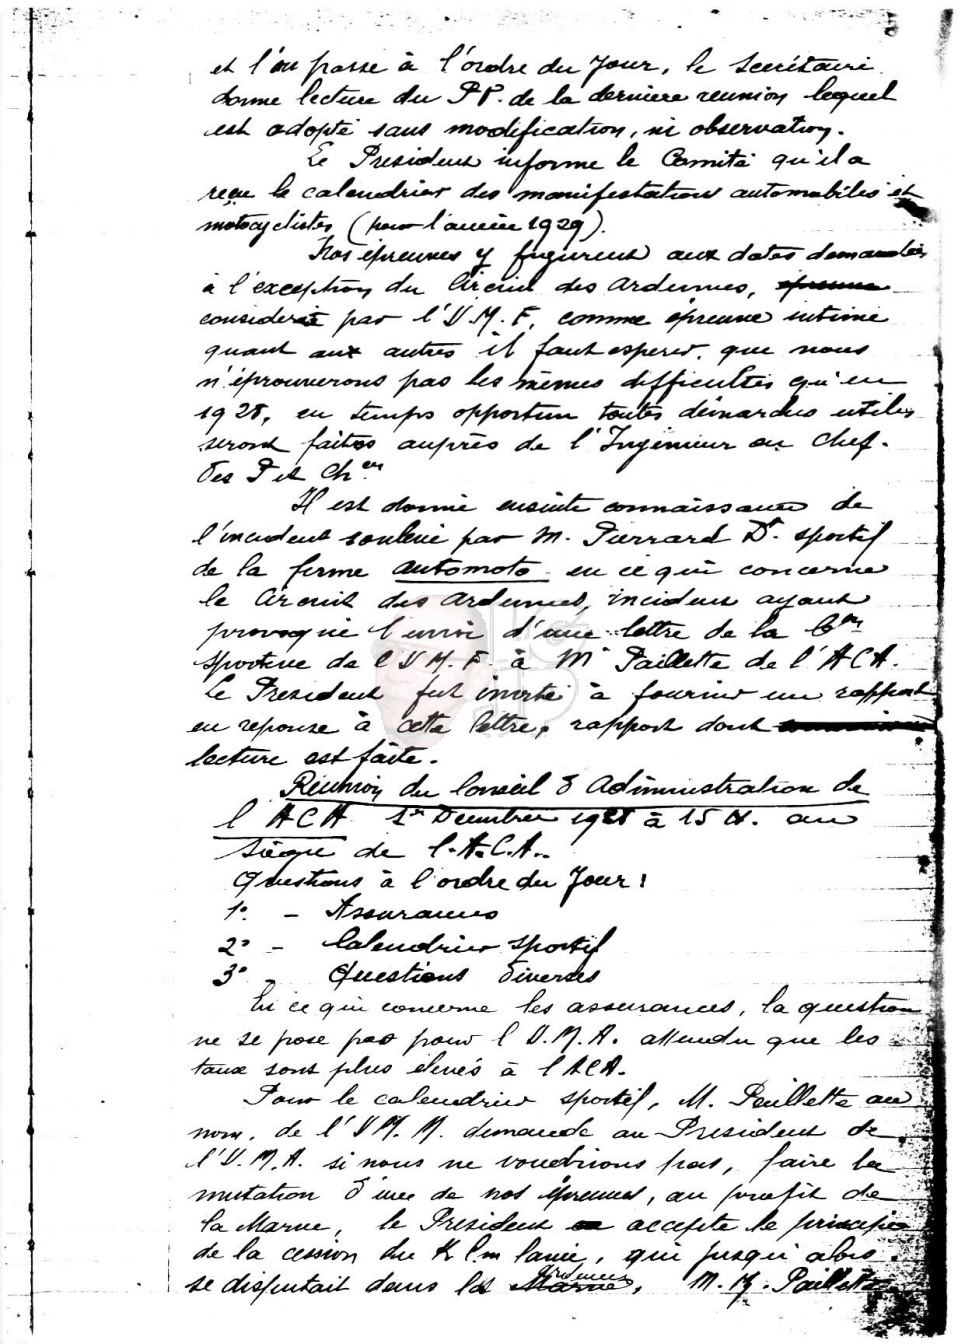 et l'on passe à l'ordre du Jour, le Secrétaire
donne lecture du P.V. de la dernière reunion lequel
est adopté sans modification, ni observation.
Le President informe le Comité qu'il a
reçu le calendrier des manifestations automobiles et
motocyclistes (pour l'année 1929).
Nos épreuves y figurent aux dates demandées
à l'exception du Circuit des Ardennes, épreuve
considerée par l'U.M.F. comme épreuve intime
quant aux autres il faut esperer, que nous
n'éprouverons pas les mêmes difficultés qu'en
1928, en temps opportun toutes démarches utiles
seront faites auprès de l'Ingénieur en Chef.
des P et Ch.
Il est donné ensuite connaissance de
l'incident soulevé par M. Pierrard Dr. sportif
de la firme automoto en ce qui concerne
le Circuit des Ardennes, incident ayant
provoqué l'envoi d'une lettre de la Con
sportive de l'U.M.F. à Mr Paillette de l'ACA.
Le President fut invité à fournir un rapport
en reponse à cette lettre, rapport dont
lecture est faite.
Réunion du Conseil d'Administration de
l'ACA 1er Decembre 1928 à 15 H. au
Siège de l'.A.C.A..
Questions à l'ordre du Jour :
1° - Assurances
2° - Calendrier sportif
3° Questions diverses
En ce qui concerne les assurances, la question
ne se pose pas pour l'U.M.A. attendu que les
taux sont plus élevés à l'ACA.
Pour le calendrier sportif, M. Paillette au
nom, de l'U.M.M. demande au President de
l'U.M.A. si nous ne voudrions pas, faire la
mutation d'une de nos épreuves, au profit de
la Marne, le President accepte le principe
de la cession du K lm lancé, qui jusqu'alors
se disputait dans les Marne Ardennes, M. M. Paillette